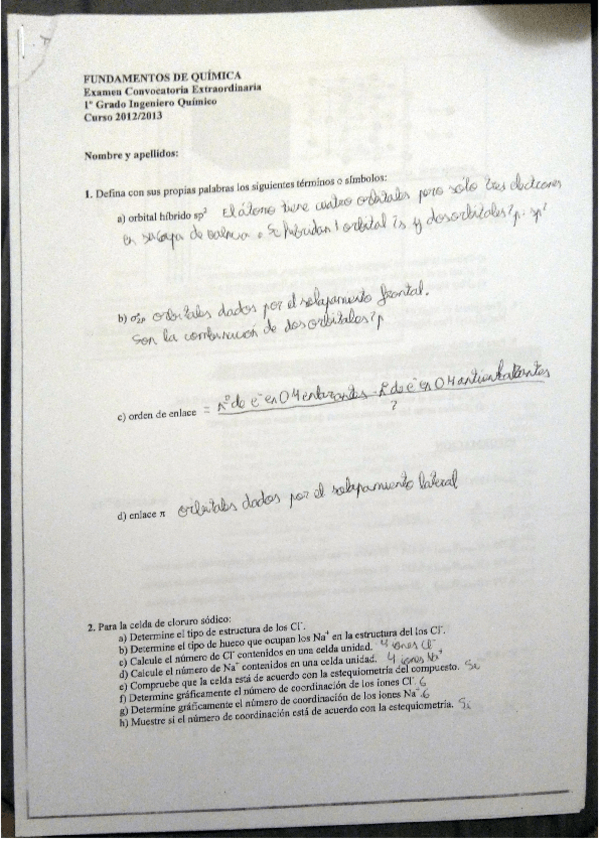 FUNDAMENTOS DE QUÍMICA
Examen Convocatoria Extraordinaria
1º Grado Ingeniero Químico
Curso 2012/2013
Nombre y apellidos:
1. Defina con sus propias palabras los siguientes términos o símbolos:
a) orbital híbrido sp² El átomo tiene cuatro orbitales pero sólo tres electrones
en su capa de valencia. Se hibridan 1 orbital 2s y dos orbitales 2p. sp²
b) σ₂ₚ orbitales dados por el solapamiento frontal.
Son la combinación de dos orbitales 2p
c) orden de enlace = nº de e⁻ en OM enlazantes - nº de e⁻ en OM antienlazantes
2
d) enlace π orbitales dados por el solapamiento lateral
2. Para la celda de cloruro sódico:
a) Determine el tipo de estructura de los Cl⁻.
b) Determine el tipo de hueco que ocupan los Na⁺ en la estructura del los Cl⁻.
c) Calcule el número de Cl⁻ contenidos en una celda unidad. 4 iones Cl⁻
d) Calcule el número de Na⁺ contenidos en una celda unidad. 4 iones Na⁺
e) Compruebe que la celda está de acuerdo con la estequiometría del compuesto. Si
f) Determine gráficamente el número de coordinación de los iones Cl⁻. 6
g) Determine gráficamente el número de coordinación de los iones Na⁺. 6
h) Muestre si el número de coordinación está de acuerdo con la estequiometría. Si